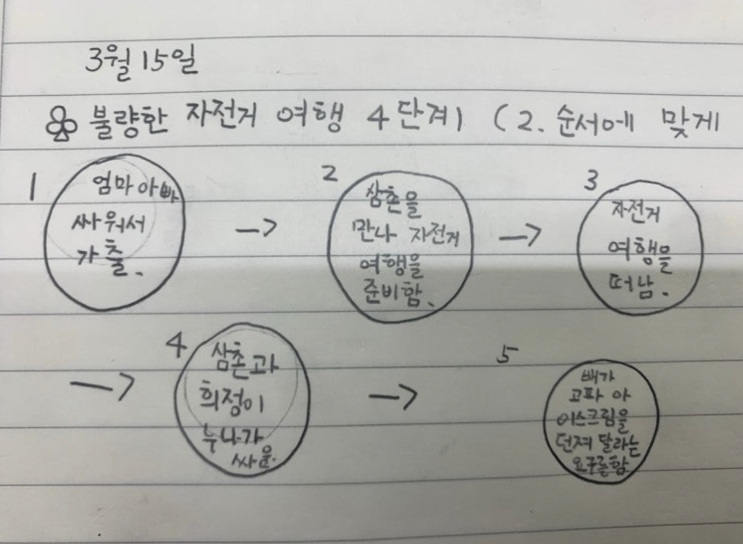 3월 15일
불량한 자전거 여행 4단계) (2. 순서에 맞게
1
엄마아빠
싸워서
가출.
→
2
삼촌을
만나 자전거
여행을
준비함.
→
3
자전거
여행을
떠남.
→
4
삼촌과
희정이
누나가
싸움.
→
5
배가
고파 아
이스크림을
던져 달라는
요구를함